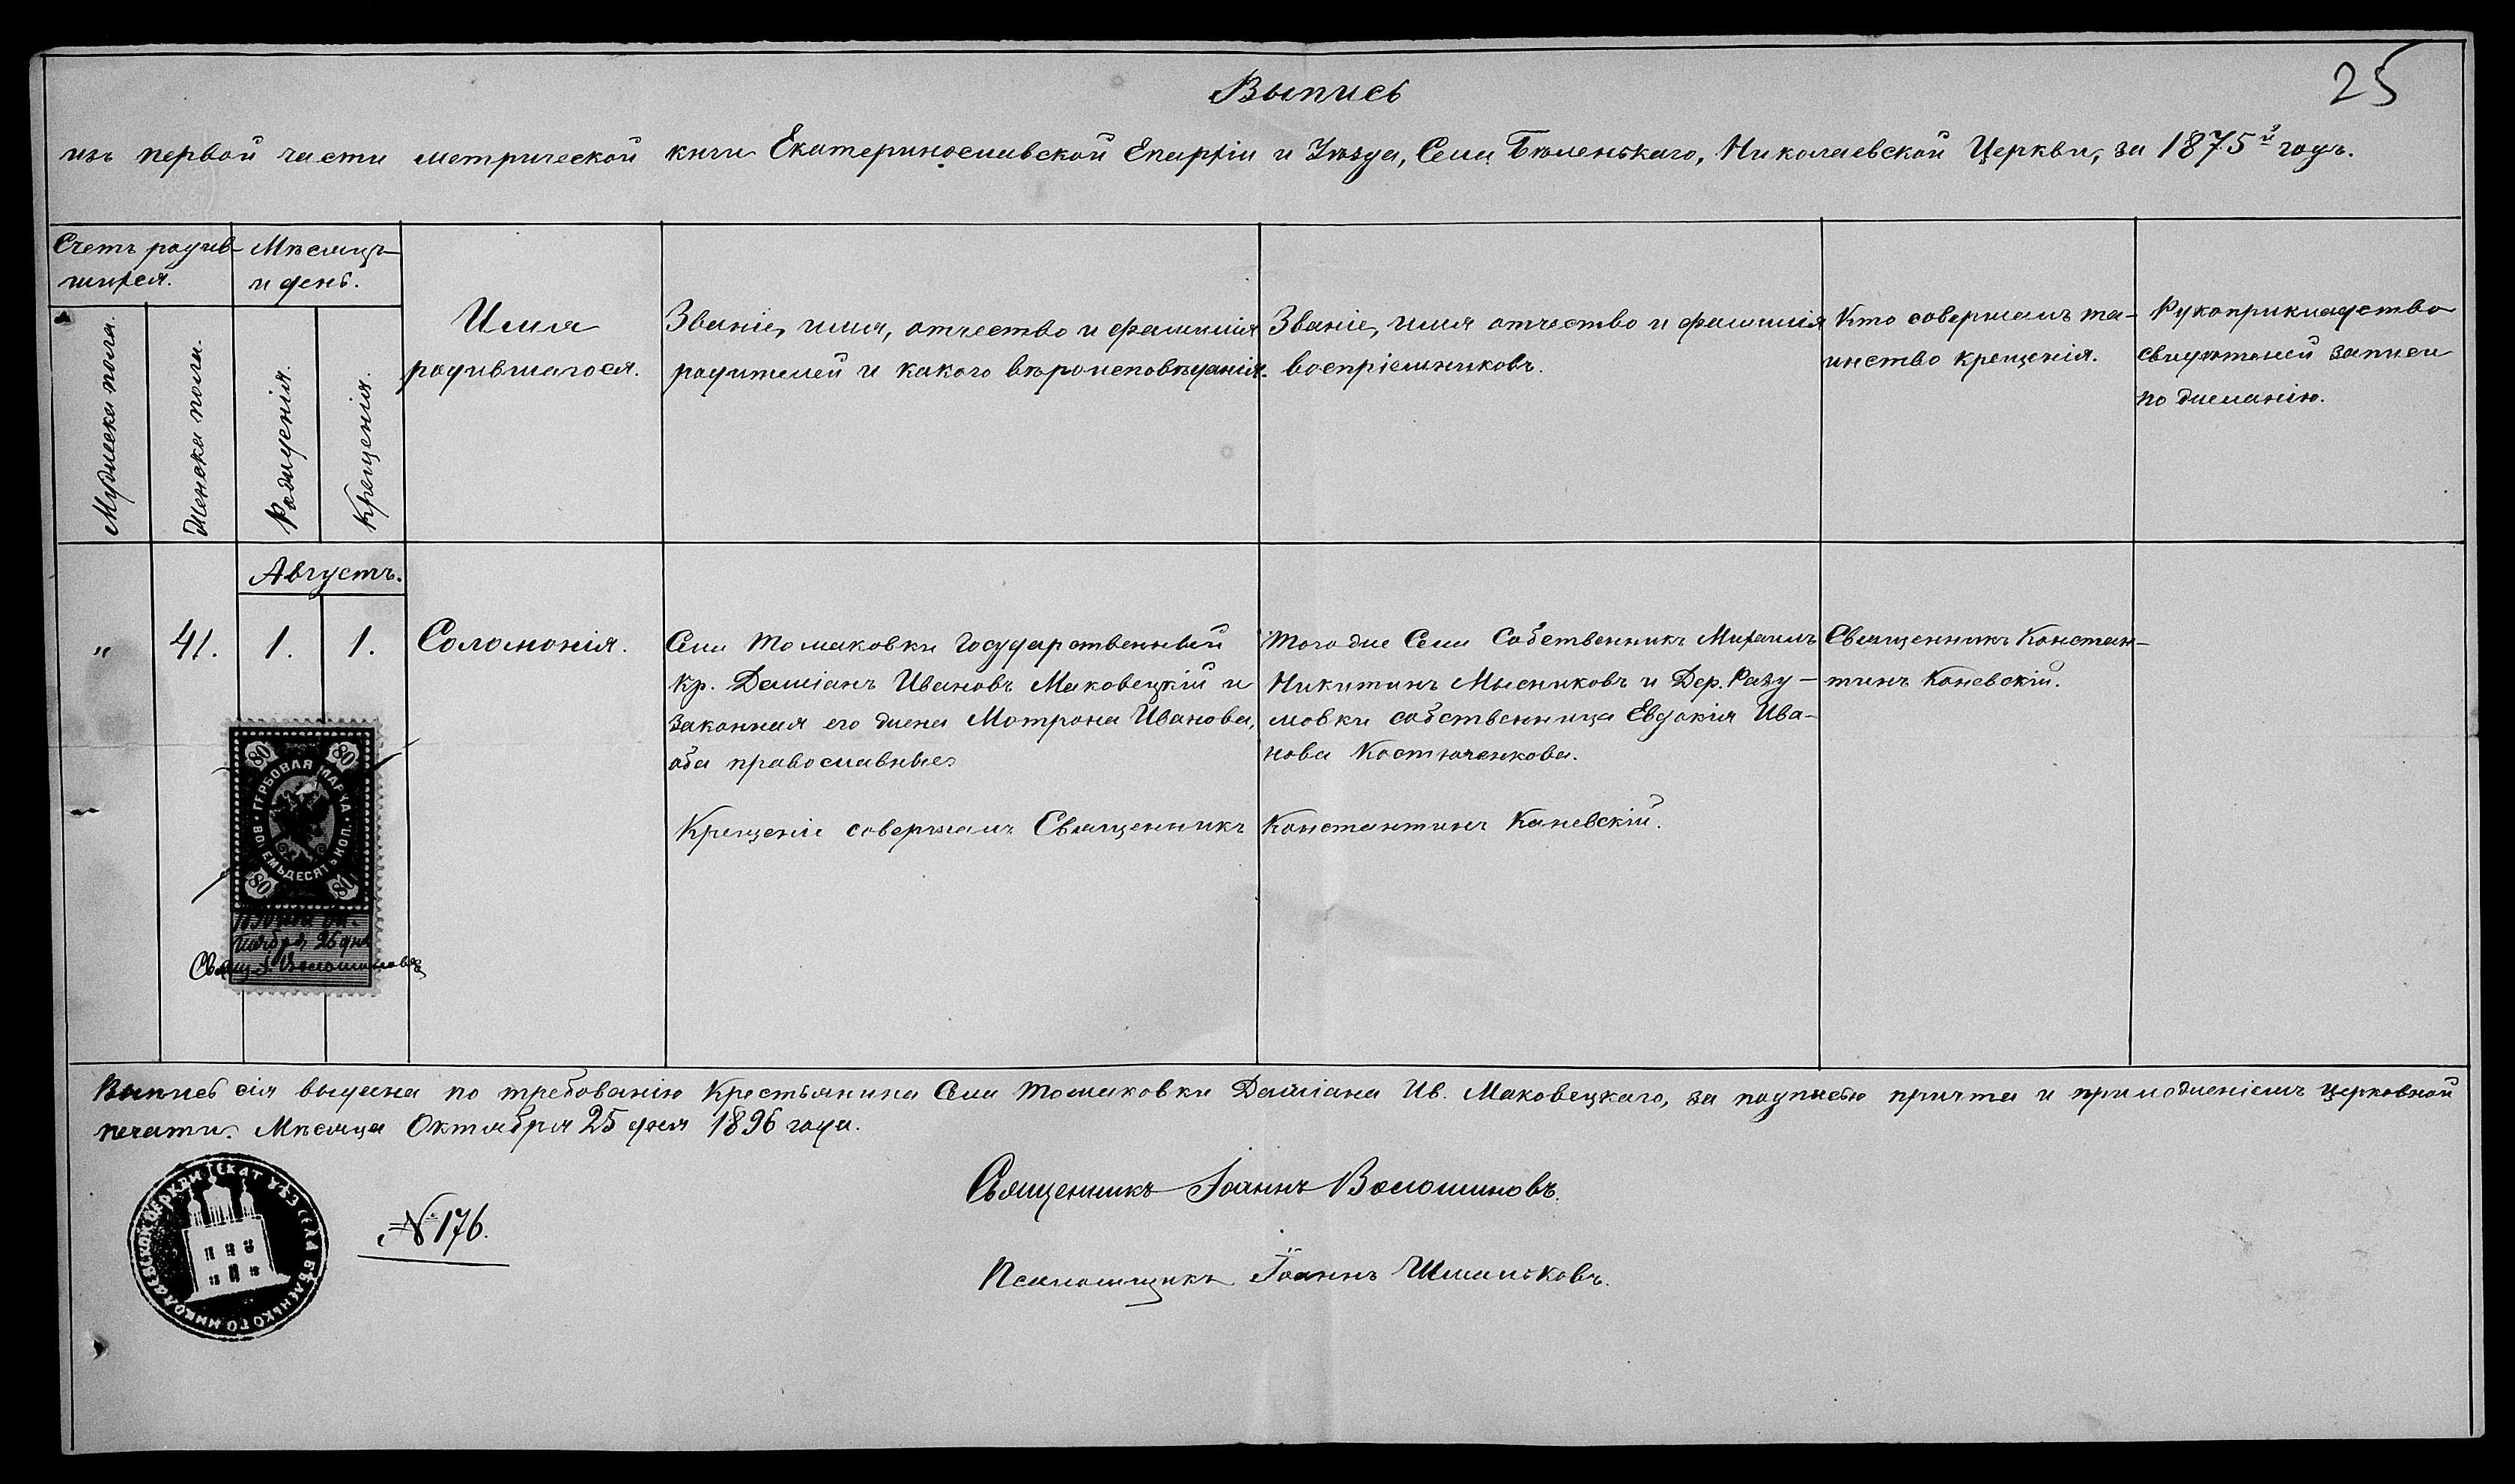 25
Выпись
изъ первой части метрической книги Екатеринославской Епархіи и Уѣзда, Села Бѣленькаго, Николаевской Церкви, за 1875й годъ.
Счетъ родив-
шихся.
Мѣсяцъ
и день.
Мужеска пола.
Женска пола.
Рожденія.
Крещенія.
Имя
родившагося.
Званіе, имя, отчество и фамилія
родителей и какого вѣроисповѣданія.
Званіе, имя отчество и фамилія
воспріемниковъ.
Кто совершалъ та-
инство крещенія.
Рукоприкладство
свидѣтелей записи
по желанію.
Августъ.
„ 41. 1. 1.
Соломонія.
Села Томаковки Государственный
Кр. Даміанъ Ивановъ Маковецкій и
законная его жена Мотрона Иванова,
оба православные
Тогоже Села Собственникъ Михаилъ
Никитинъ Мысниковъ и Дер. Разу-
мовки собственница Евдокія Ива-
нова Костюченкова.
Священникъ Констан-
тинъ Каневскій.
Крещеніе совершалъ Священникъ Константинъ Каневскій.
80 80
ГЕРБОВАЯ МАРКА
ВОСЕМЬДЕСЯТЪ КОП.
80 80
25 дня
Свящ. І. Волошиновъ
Выпись сія выдана по требованію Крестьянина Села Томаковки Даміана Ив. Маковецкаго, за подписью причта и приложеніемъ церковной
печати. Мѣсяца Октября 25 дня 1896 года.
Священникъ Іоаннъ Волошиновъ.
№ 176.
Псаломщикъ Іоаннъ Шмальковъ.
НИКОЛАЕВСКОЙ ЦЕРКВИ ЕКАТ УѢЗ СЕЛА БѢЛЕНЬКОГО